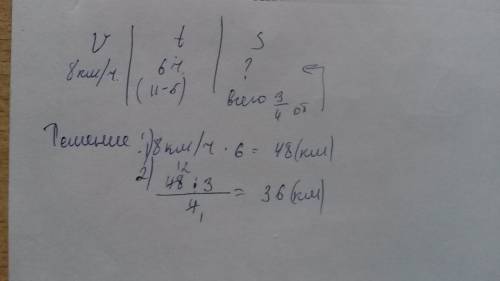 V | t | S
8км/ч. | 6ч. | ?
(11-5) | всего 3/4 от
Решение: 1) 8км/ч · 6 = 48(км)
2) 48 12 : 3 / 4 1 = 36(км)